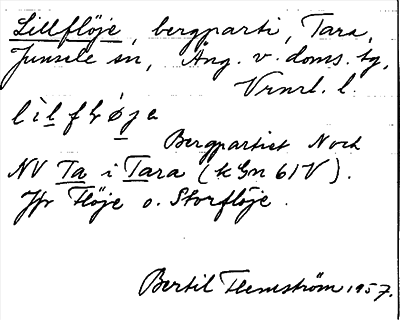 Lillflöje, bergparti, Tara,
Junsele sn, Ång. v. doms. tg,
Vrnrl. l.
Bergpartiet N och
NV Ta i Tara (k Gn 61V).
Jfr Flöje o. Storflöje.
Bertil Flemström 1957.